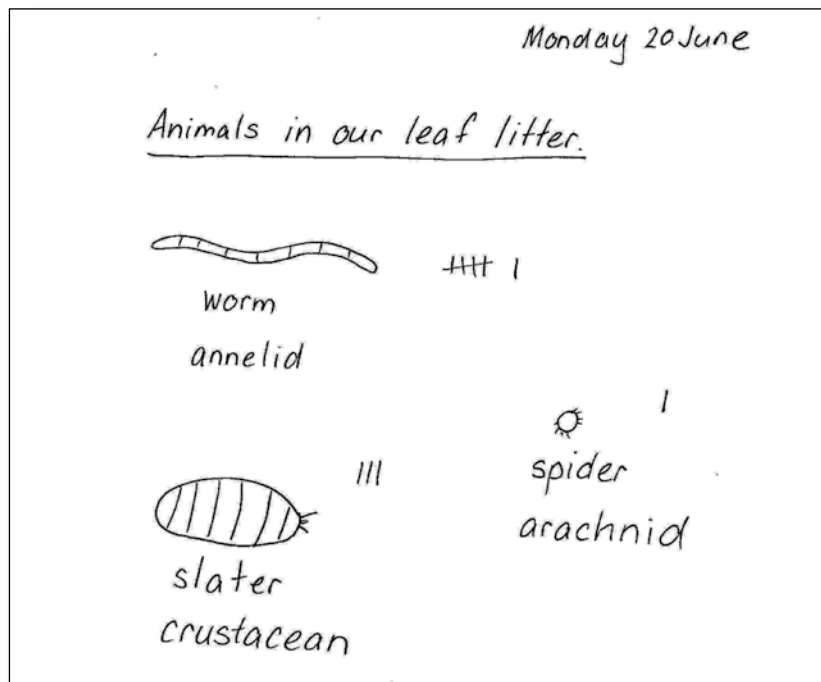 Monday 20 June
Animals in our leaf litter.
worm
annelid
spider
arachnid
slater
crustacean